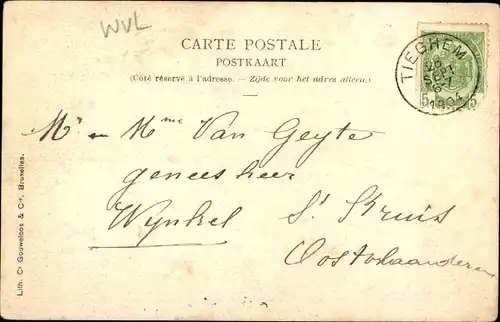 WVL
CARTE POSTALE
POSTKAART
(Côté réservé à l'adresse. – Zijde voor het adres alleen.)
TIEGHEM
26
SEPT
6
1904
5 5
Mr en Mme Van Geyte
geneesheer
Wynkel St Kruis
Oostvlaanderen
Lith. Cr Gouweloos & Cie, Bruxelles.